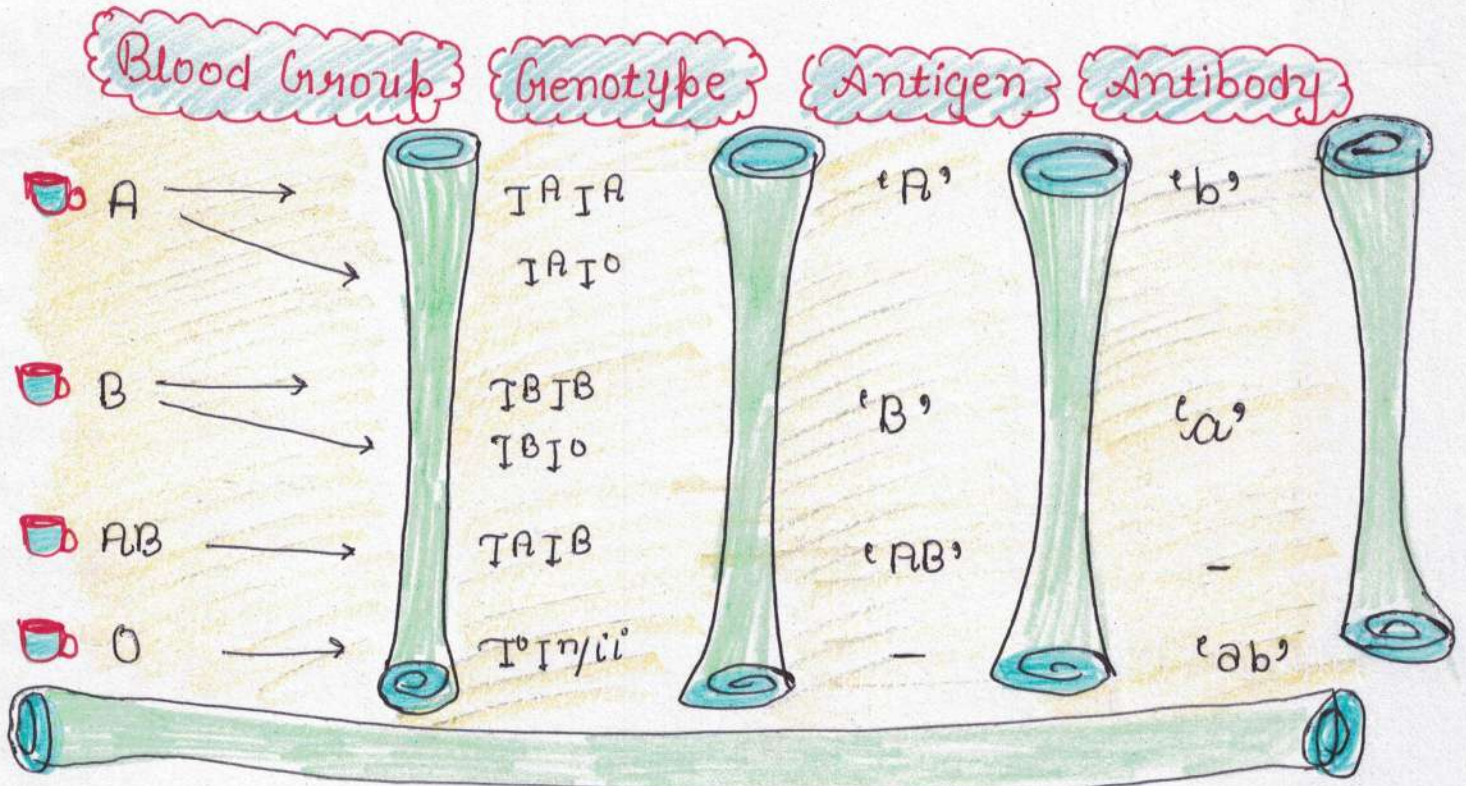 Blood Group Genotype Antigen Antibody
A IᴬIᴬ 'A' 'b'
IᴬIᴼ
B IᴮIᴮ 'B' 'a'
IᴮIᴼ
AB IᴬIᴮ 'AB' -
O IᴼIⁿ/ii - 'ab'